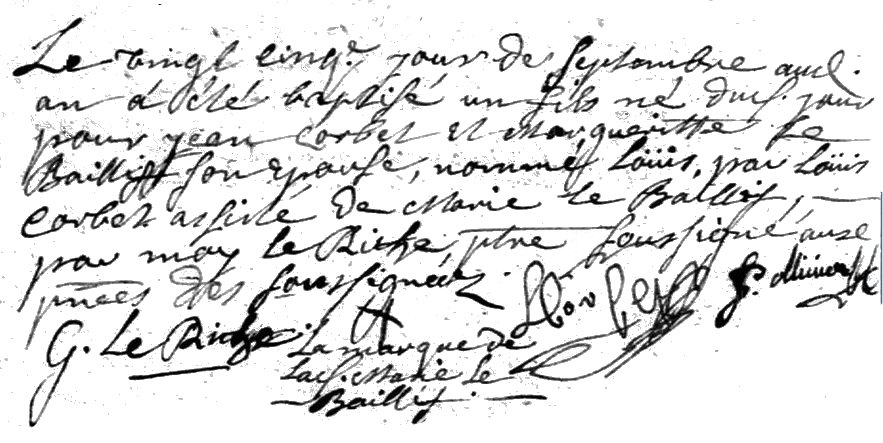 Le vingt cinqe. jour de septembre aud.
an a été baptisé un fils né dud. jour
pour jean Corbet et Margueritte Le
Baillif son epouse, nommé Loüis, par Loüis
Corbet assisté de Marie le Baillif,
par moy le Riche ptre soussigné aux
pnces des soussignéz
G. Le Riche.
La marque de
lad. Marie le
Baillif.